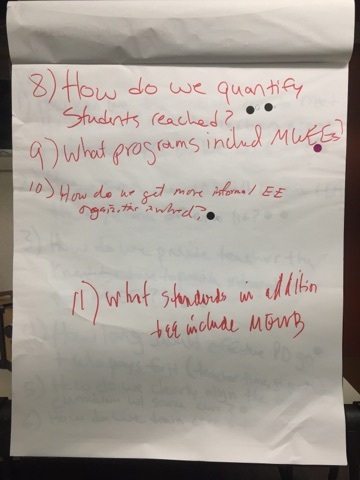 8) How do we quantify
Students reached?
9) What programs includ MWEEs?
10) How do we get more informal EE
involved?
11) What standards in addition
include